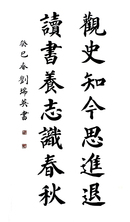 觀史知今思進退
讀書養志識春秋
癸巳冬劉瑞英書